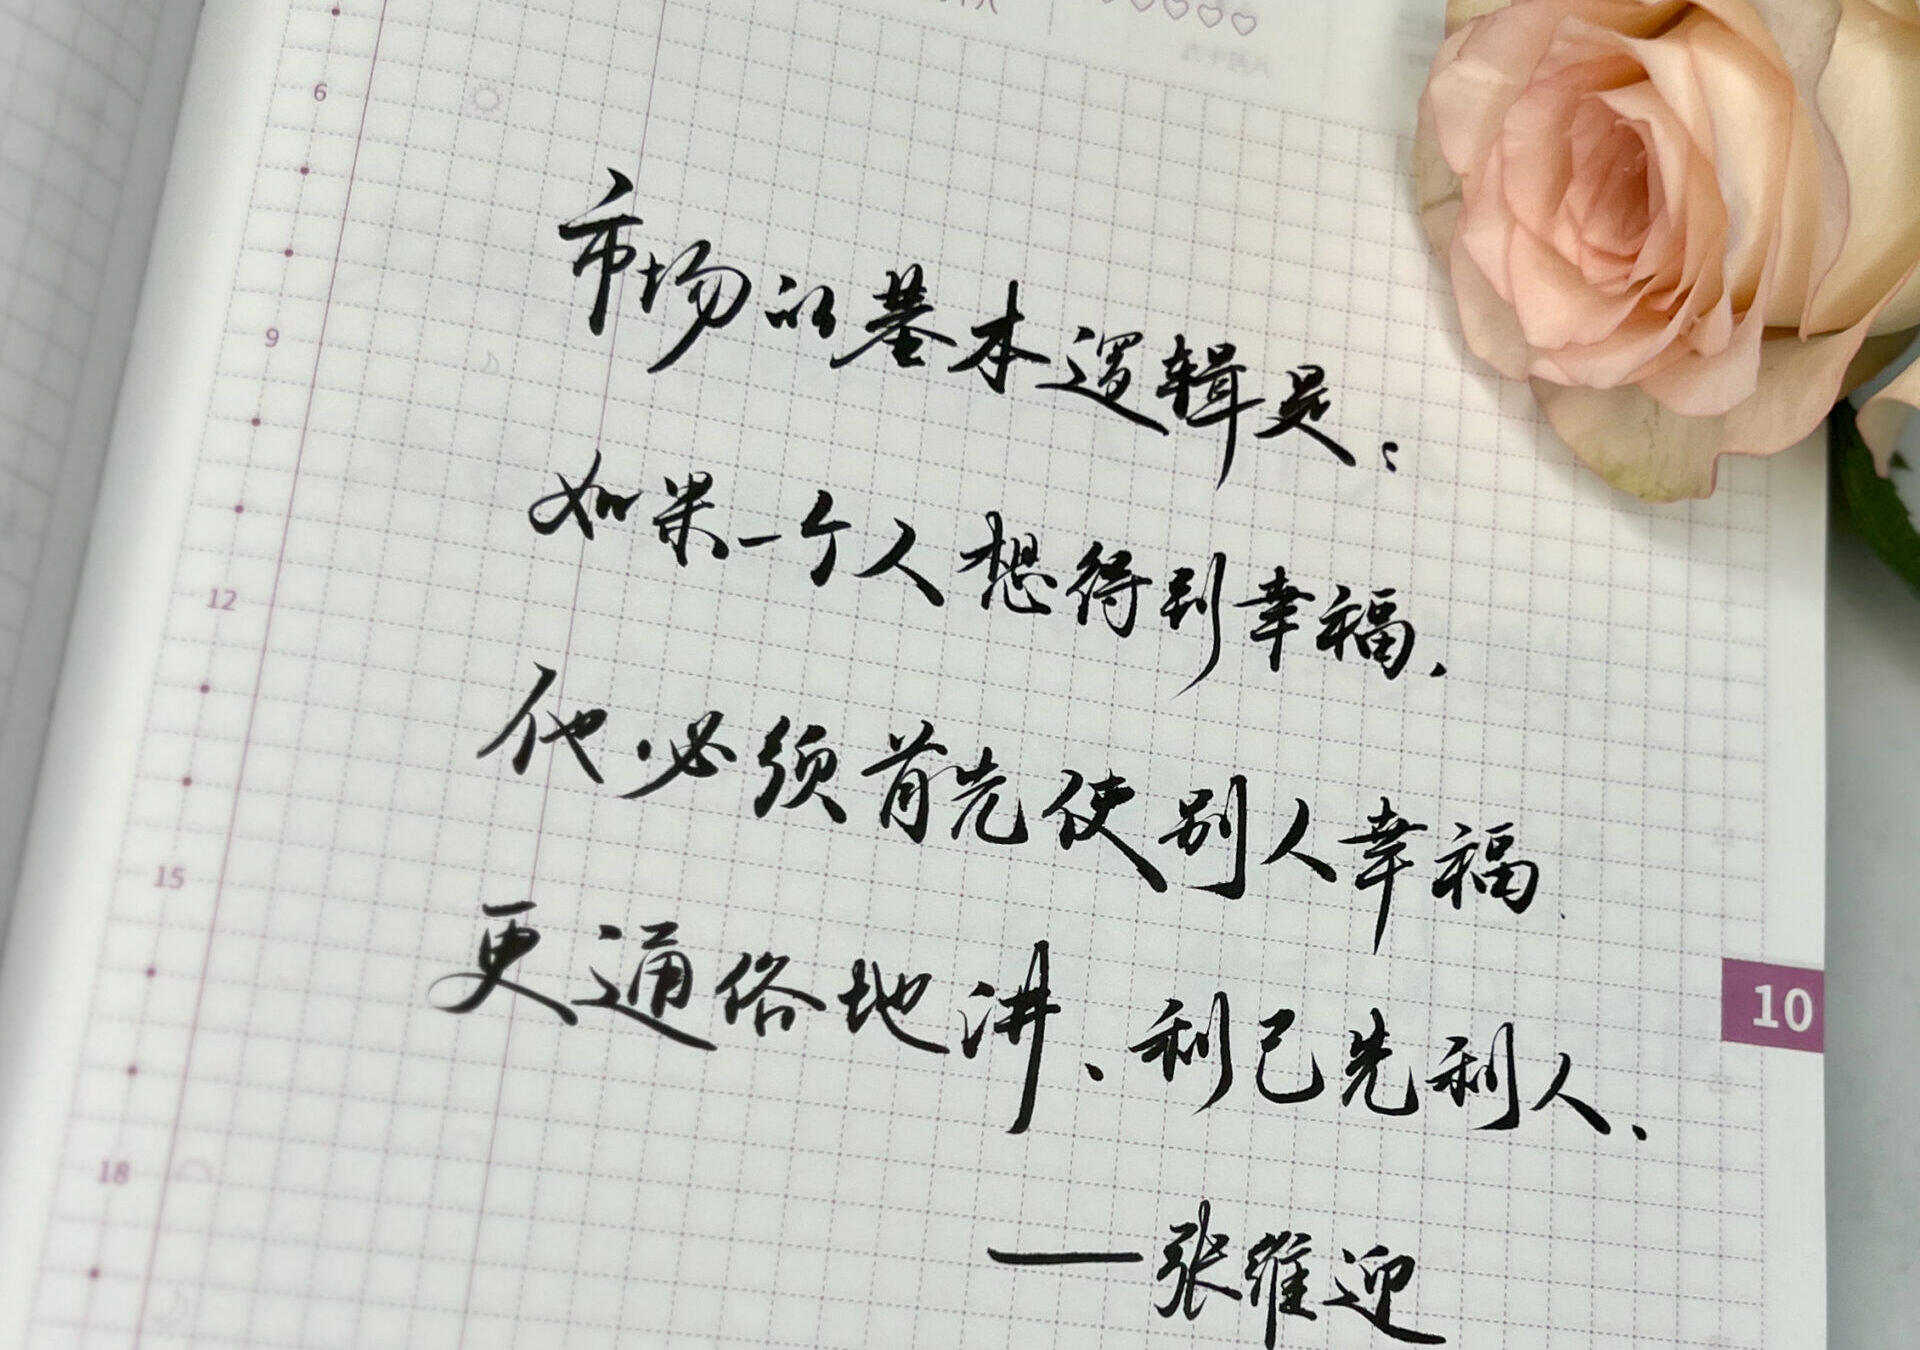 6
9
12
15
18
10
市场的基本逻辑是：
如果一个人想得到幸福，
他必须首先使别人幸福.
更通俗地讲、利己先利人、
——张维迎